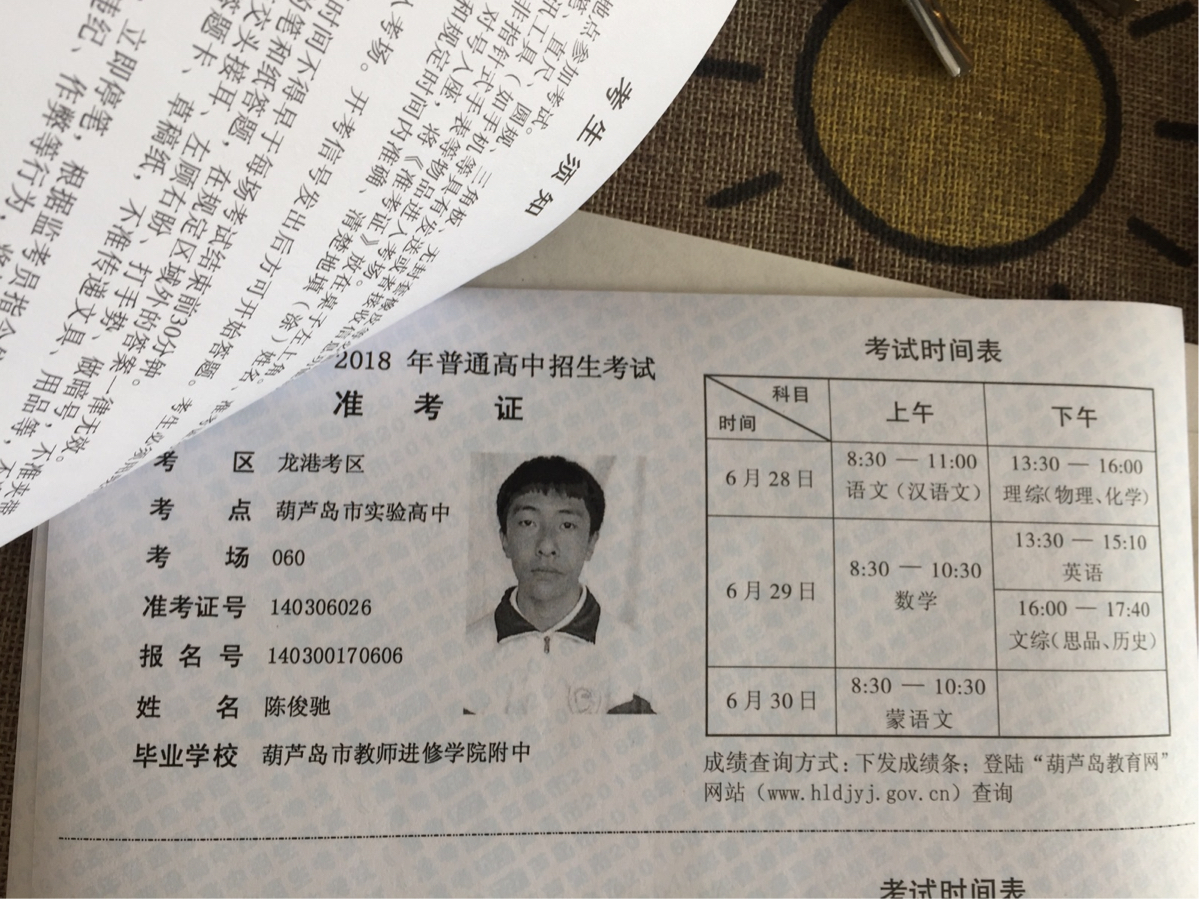 考生须知
地点参加考试。
直尺、圆规、三角板、无封套橡皮
讯工具（如手机等具有发送或者接收信息
非指针式手表等物品进入考场。
对号入座，将《准考证》放在桌子左上角。
和规定时间内准确、清楚地填（涂）姓名、准考
考场。开考信号发出后方可开始答题。
时间不得早于每场考试结束前30分钟。
笔和纸答题，在规定区域外的答案一律无效。
交头接耳、左顾右盼、打手势、做暗号，不准夹带
答题卡、草稿纸，不准传递文具、用品等，不
立即停笔，根据监考员指令
违纪、作弊等行为，将
2018 年普通高中招生考试
准 考 证
考 区 龙港考区
考 点 葫芦岛市实验高中
考 场 060
准考证号 140306026
报 名 号 140300170606
姓 名 陈俊驰
毕业学校 葫芦岛市教师进修学院附中
考试时间表
科目
时间 上午 下午
6月28日 8:30 — 11:00 13:30 — 16:00
语文（汉语文） 理综(物理、化学)
6月29日 8:30 — 10:30 13:30 — 15:10
数学 英语
16:00 — 17:40
文综(思品、历史)
6月30日 8:30 — 10:30
蒙语文
成绩查询方式：下发成绩条；登陆“葫芦岛教育网”
网站（www.hldjyj.gov.cn）查询
考试时间表